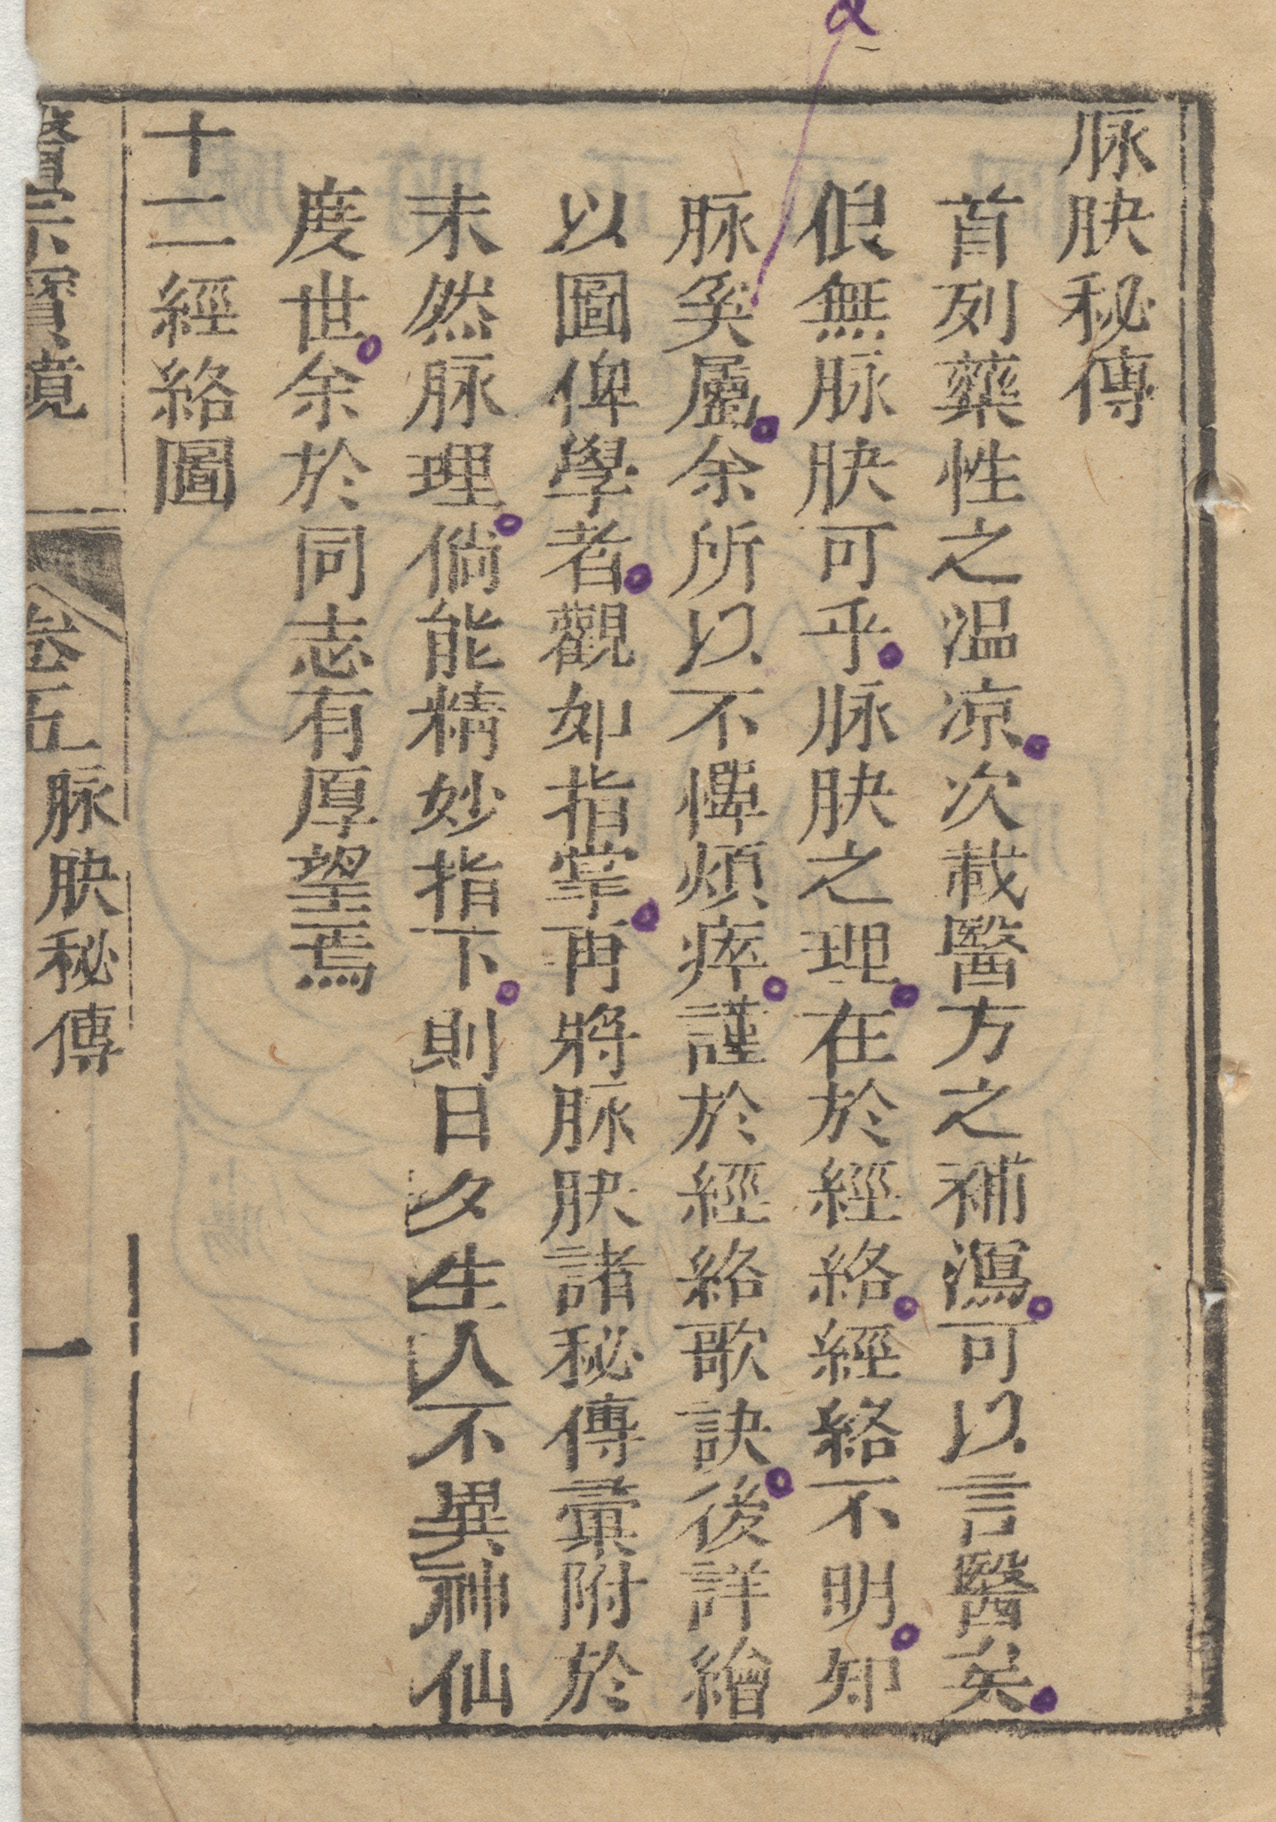 脉肤秘傳
首列藥性之温凉次載醫方之補瀉可以言醫矣
俍無脉肤可乎脉肤之理在於經絡經絡不明知
脉奚屬余所以不憚煩瘁謹於經絡歌訣後詳繪
以圖俾學者觀如指掌再將脉肤諸秘傳彚附於
末然脉理倘能精妙指下則日夕生人不異神仙
度世余於同志有厚望焉
十二經絡圖
醫宗寳鏡
卷五
脉肤秘傳
一